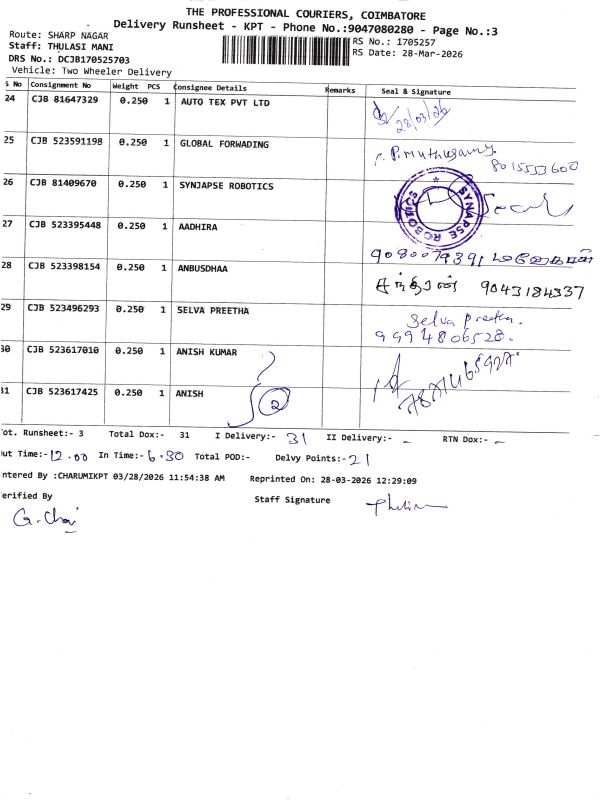 THE PROFESSIONAL COURIERS, COIMBATORE
Delivery Runsheet - KPT - Phone No.:9047080280 - Page No.:3
Route: SHARP NAGAR
RS No.: 1705257
Staff: THULASI MANI
RS Date: 28-Mar-2026
DRS No.: DCJB170525703
Vehicle: Two Wheeler Delivery
S No Consignment No Weight PCS Consignee Details Remarks Seal & Signature
24 CJB 81647329 0.250 1 AUTO TEX PVT LTD
28/03/26
25 CJB 523591198 0.250 1 GLOBAL FORWADING
P.Muthusamy.
8015553600
26 CJB 81409670 0.250 1 SYNJAPSE ROBOTICS
SYNAPSE ROBOTICS
27 CJB 523395448 0.250 1 AADHIRA
9080079391
28 CJB 523398154 0.250 1 ANBUSDHAA
9043184337
29 CJB 523496293 0.250 1 SELVA PREETHA
Selva Preetha.
9994806528.
30 CJB 523617010 0.250 1 ANISH KUMAR
31 CJB 523617425 0.250 1 ANISH
2
ot. Runsheet:- 3 Total Dox:- 31 I Delivery:- 31 II Delivery:- - RTN Dox:- -
ut Time:- 12.00 In Time:- 6.30 Total POD:- Delvy Points:- 21
ntered By :CHARUMIKPT 03/28/2026 11:54:38 AM Reprinted On: 28-03-2026 12:29:09
erified By Staff Signature